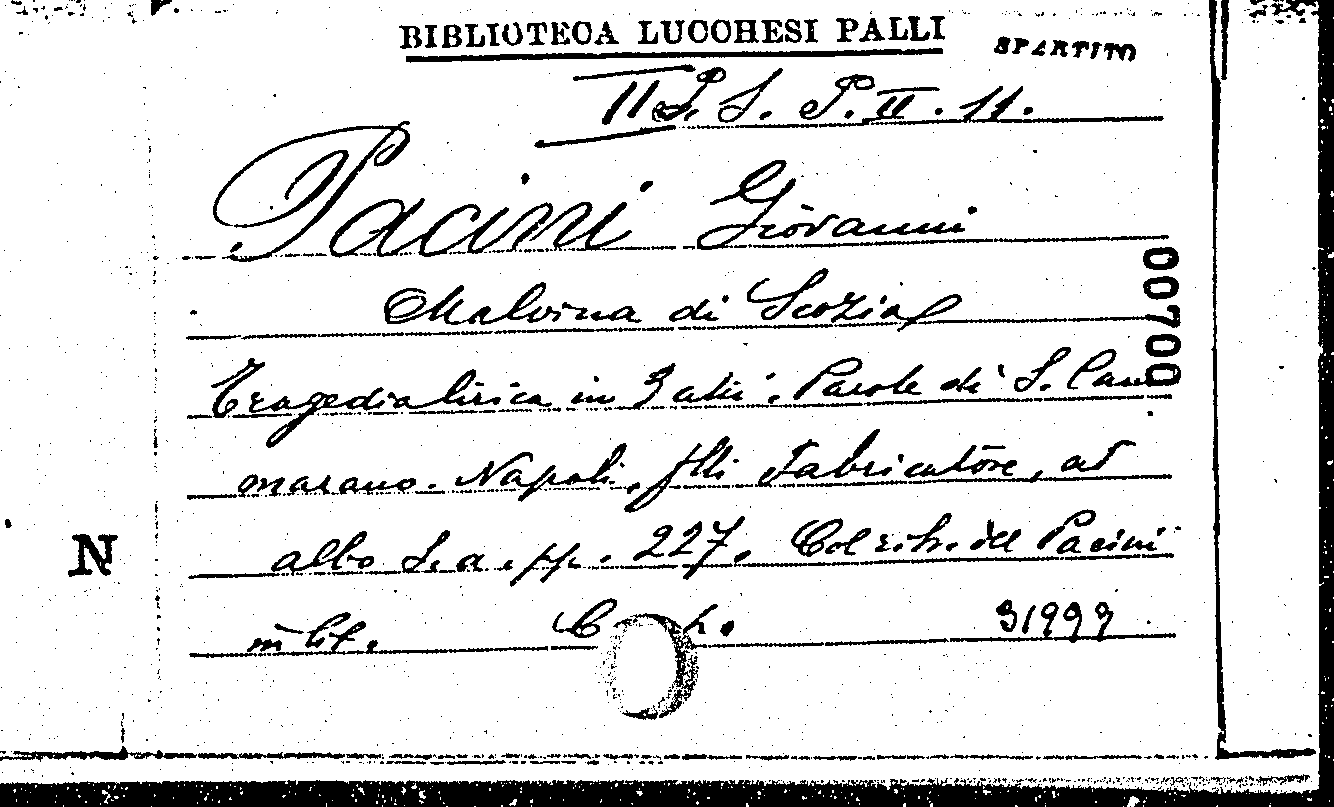 BIBLIOTECA LUCCHESI PALLI
SPARTITO
II P. S. P. II. 11.
Pacini Giovanni
00700
Malvina di Scozia
Tragedia lirica in 3 atti. Parole di S. Cam
marano. Napoli, flli Fabricatore, at
albo s. a. pp. 227. Col ritr. del Pacini
N
in lit.
31999